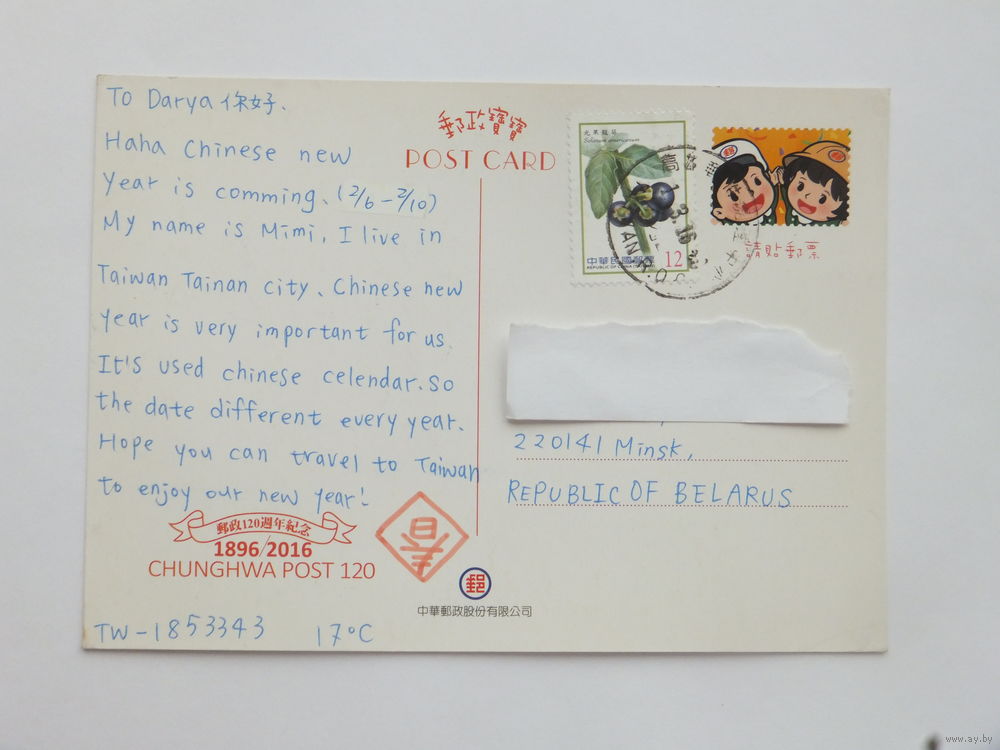 To Darya 你好.
Haha Chinese new
Year is comming. (2/6-2/10)
My name is Mimi, I live in
Taiwan Tainan city、Chinese new
year is very important for us.
It's used chinese celendar. So
the date different every year.
Hope you can travel to Taiwan
to enjoy our new year!
郵政120週年紀念
1896/2016
CHUNGHWA POST 120
春
TW-1853343 17°C
郵政寶寶
POST CARD
光果龍葵
Solanum americanum
中華民國郵票
REPUBLIC OF CHINA
12
郵
請貼郵票
220141 Minsk,
REPUBLIC OF BELARUS
郵
中華郵政股份有限公司
www.ay.by